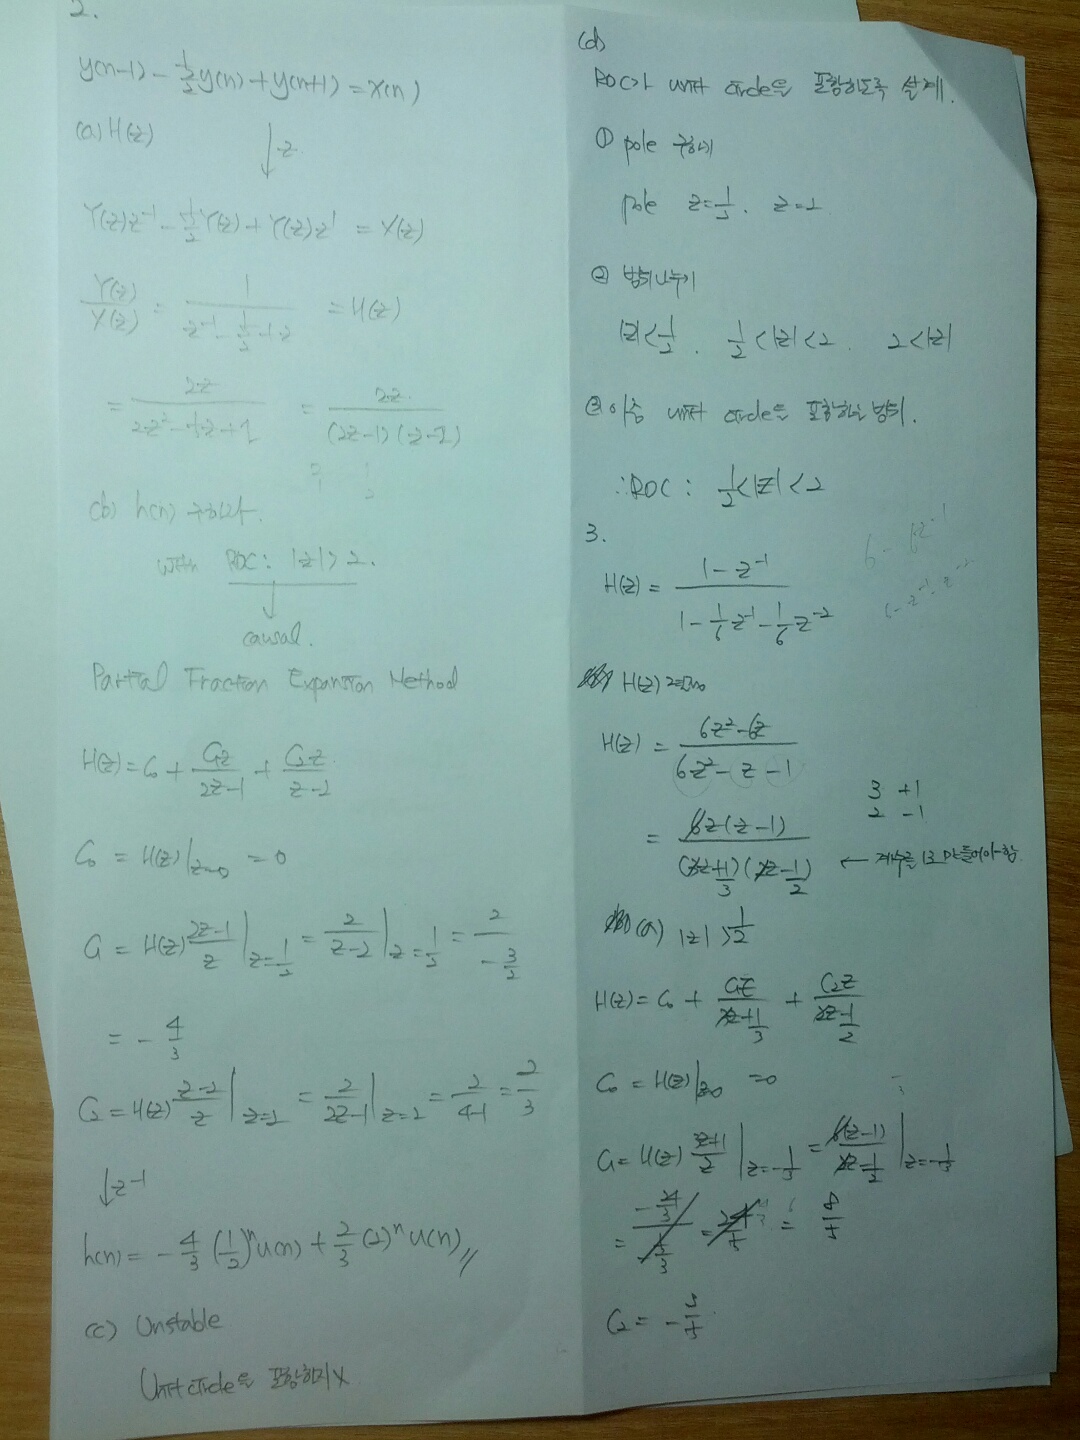 2.
y(n-1) - 1/2 y(n) + y(n+1) = x(n)
(a) H(z)
↓ z
Y(z)z^-1 - 1/2 Y(z) + Y(z)z^1 = X(z)
Y(z)/X(z) = 1/(z^-1 - 1/2 + z) = H(z)
= 2z/(2z^2 - z + 2) = 2z/((2z-1)(z-2))
(b) h(n) 구하라.
with ROC: |z| > 2.
↓
causal.
Partial Fraction Expansion Method
H(z) = C0 + C1z/(2z-1) + C2z/(z-2)
C0 = H(z)|z=0 = 0
C1 = H(z) (2z-1)/z |z=1/2 = 2/(z-2) |z=1/2 = 2/(-3/2)
= - 4/3
C2 = H(z) (z-2)/z |z=2 = 2/(2z-1) |z=2 = 2/(4-1) = 2/3
↓ z^-1
h(n) = - 4/3 (1/2)^n u(n) + 2/3 (2)^n u(n) //
(c) Unstable
Unit circle을 포함하지 X
(d)
ROC가 unit circle을 포함하도록 설계.
① pole 구하기
pole z=1/2, z=2
② 범위나누기
|z|<1/2, 1/2<|z|<2, 2<|z|
③ 이중 unit circle을 포함하는 범위.
∴ROC: 1/2<|z|<2
3.
H(z) = (1 - z^-1)/(1 - 1/6 z^-1 - 1/6 z^-2)
6 - 6z^-1
6 - z^-1 - z^-2
H(z)
H(z) = (6z^2 - 6z)/(6z^2 - z - 1)
3 +1
2 -1
= 6z(z-1)/((z+1/3)(z-1/2)) ← 계수를 1로 만들어야함.
(a) |z| > 1/2
H(z) = C0 + C1z/(z+1/3) + C2z/(z-1/2)
C0 = H(z)|z=0 = 0
C1 = H(z) (z+1/3)/z |z=-1/3 = (z-1)/(z-1/2) |z=-1/3
= = 8/5
C2 = - 3/5